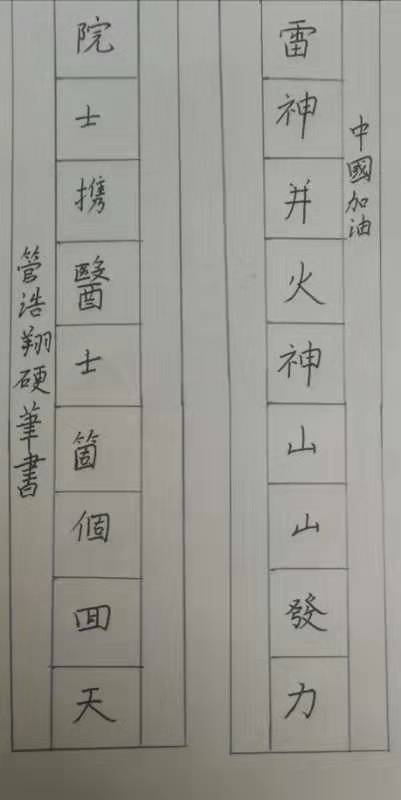 中國加油
雷神并火神山山發力
院士携醫士箇個回天
管浩翔硬筆書